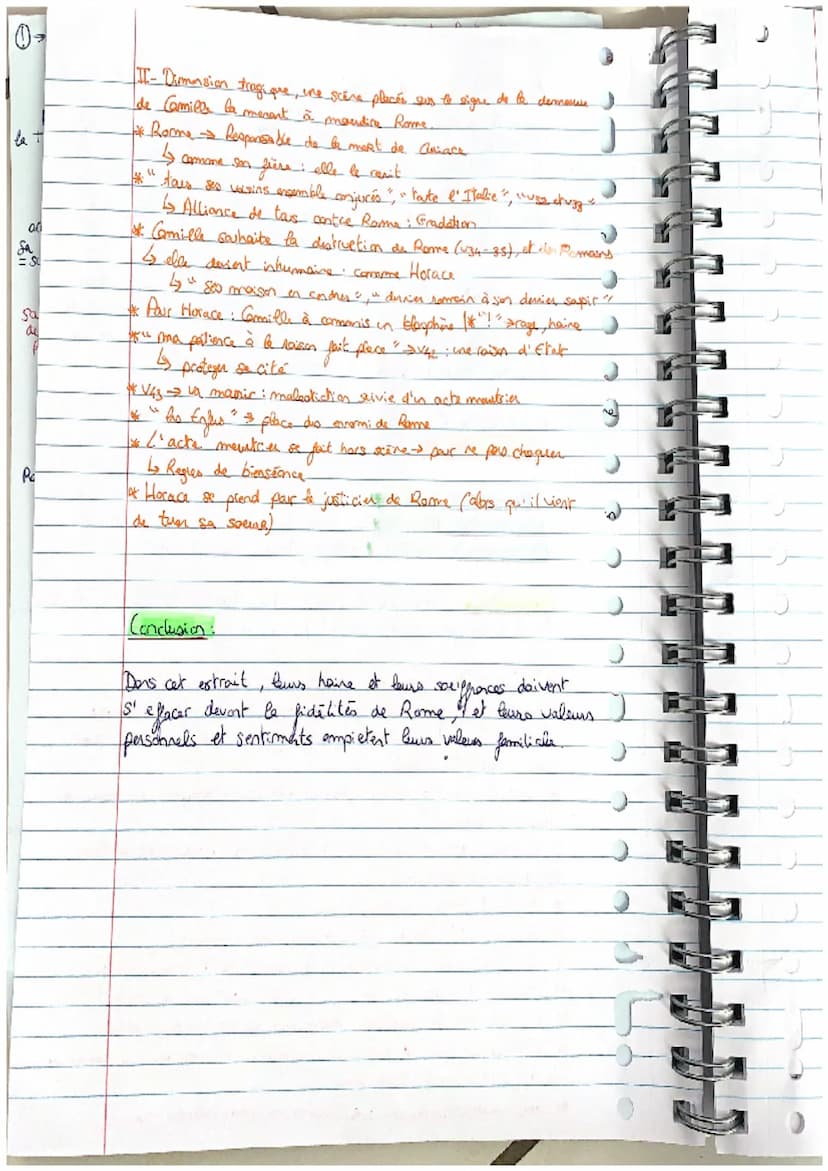 II- Dimension tragique, une scène placée sous le signe de la demeure
de Camille la menant à maudire Rome.
* Rome → Responsable de la mort de Curiace
↳ comme son frère : elle le renit
* "tous ses voisins ensemble conjurés", "toute l'Italie", "v32 et v33"
↳ Alliance de tous contre Rome : Gradation
* Camille souhaite la destruction de Rome (v34-35), et des Romains
↳ elle devient inhumaine : comme Horace
↳ "ses maison en cendres", "dernier romain à son dernier soupir"
* Pour Horace : Camille à commis un blasphème (*"!" → rage, haine
* "ma patience à la raison fait place" → v42 : une raison d'Etat
↳ protéger sa cité
* v43 → va mourir : malediction suivie d'un acte meurtrier
* "les Enfers" → place des ennemi de Rome
* L'acte meurtrier se fait hors scène → pour ne pas choquer
↳ Regles de bienséance
* Horace se prend par le justicier de Rome (alors qu'il vient
de tuer sa soeur)
Conclusion :
Dans cet extrait, leurs haine et leurs souffrances doivent
s'effacer devant la fidélités de Rome, et leurs valeurs
personnels et sentiments empietent leurs valeurs familiale.
la
Po